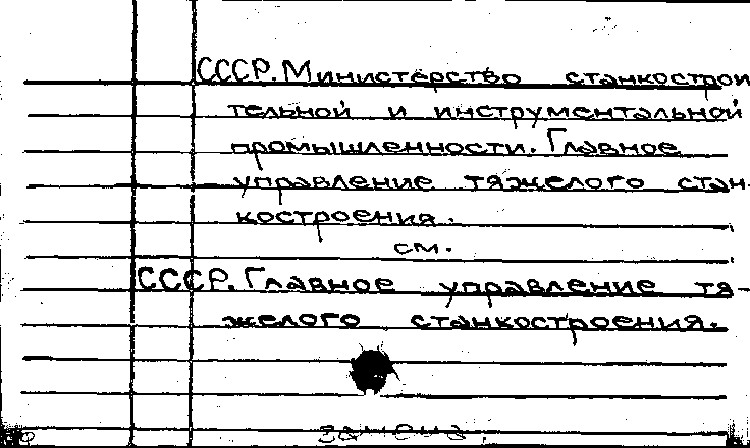 СССР. Министерство станкострои
тельной и инструментальной
промышленности. Главное
управление тяжелого стан-
костроения.
см.
СССР. Главное управление тя-
желого станкостроения.
замена